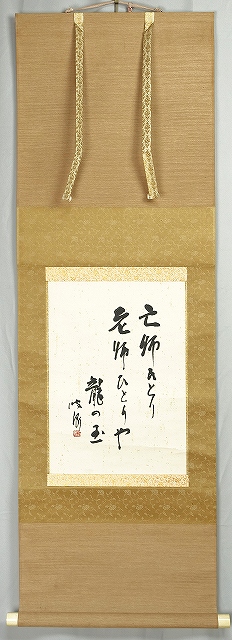 亡師ひとり
老師ひとりや
龍の玉